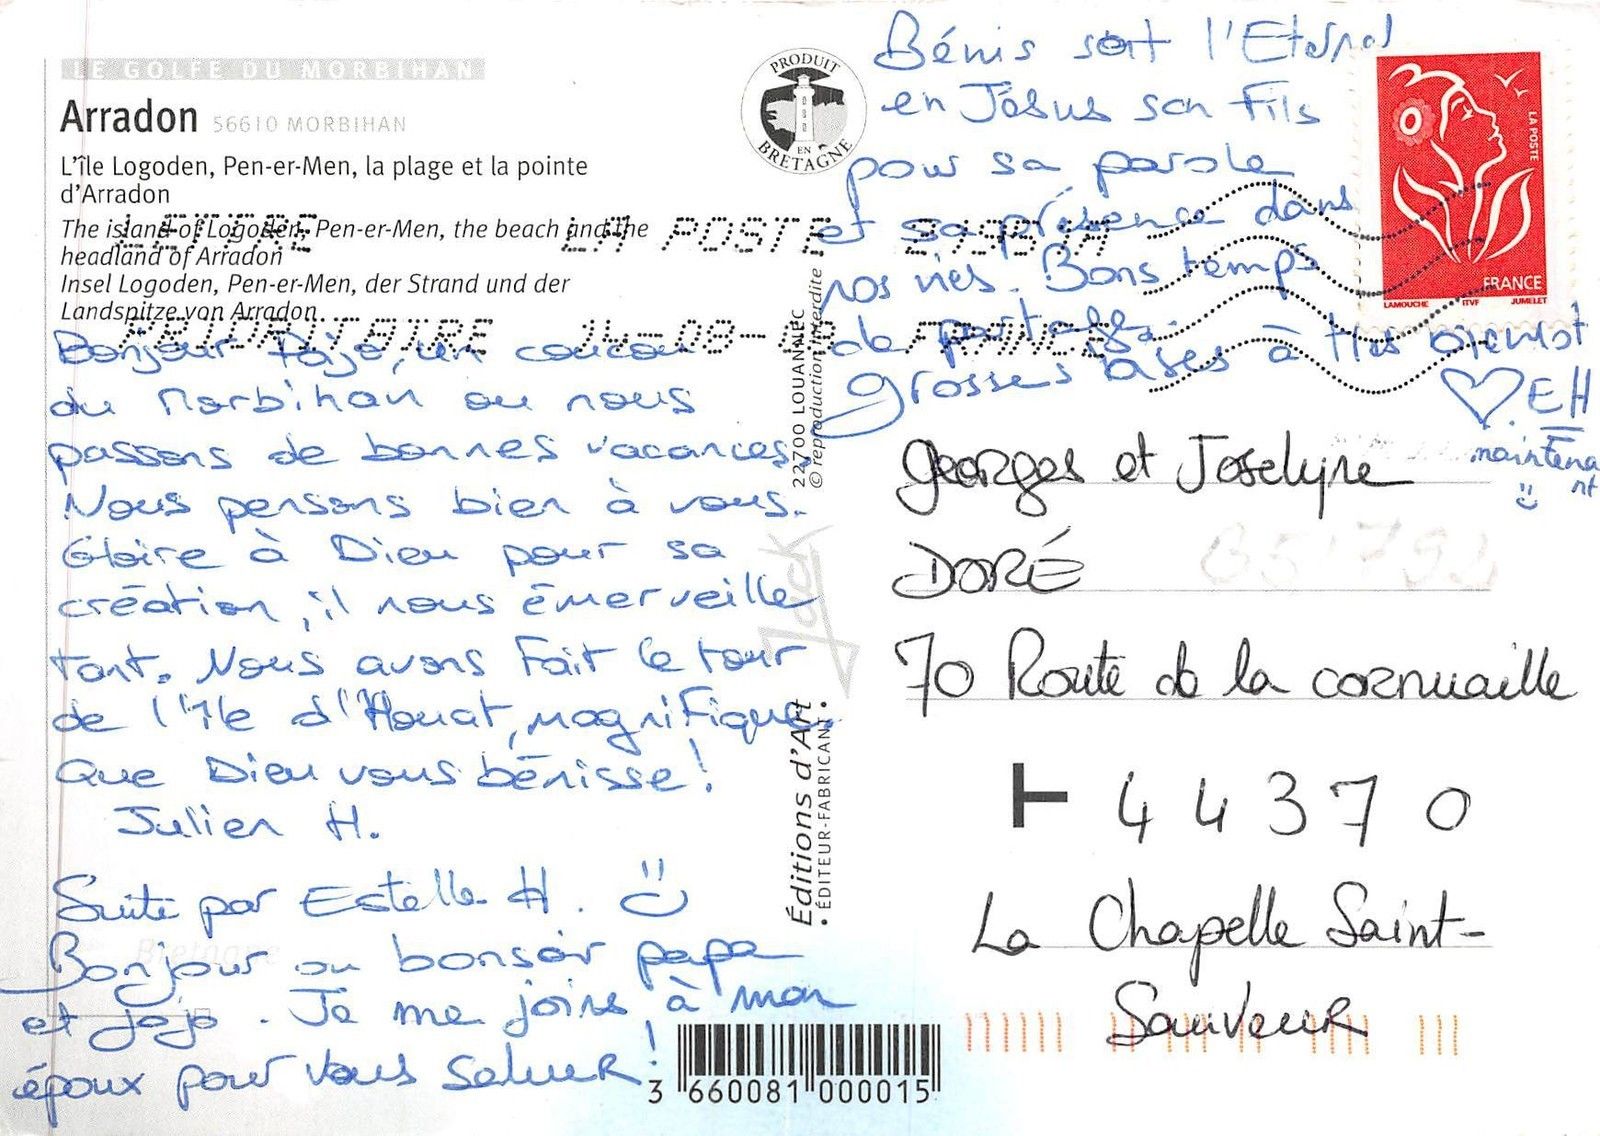 LE GOLFE DU MORBIHAN
Arradon 56610 MORBIHAN
L'île Logoden, Pen-er-Men, la plage et la pointe
d'Arradon
The island of Logoden, Pen-er-Men, the beach and the
headland of Arradon
Insel Logoden, Pen-er-Men, der Strand und der
Landspitze von Arradon
PRODUIT
EN
BRETAGNE
LETTRE LA POSTE 21951A
PRIORITAIRE 14-08- FRANCE
LA POSTE
FRANCE
LAMOUCHE ITVF JUMELET
Bonjour un coucou
du Morbihan ou nous
passons de bonnes vacances.
Nous pensons bien à vous.
Gloire à Dieu pour sa
création, il nous émerveille
tant. Nous avons fait le tour
de l'île d'Houat, magnifique.
Que Dieu vous bénisse!
Julien H.
Suite par Estelle H.
Bonjour ou bonsoir papa
et jojo. Je me joins à mon
époux pour vous saluer!
Bénis soit l'Eternel
en Jésus son fils
pour sa parole
et sa présence dans
nos vies. Bons temps
de partage.
grosses bises à très bientôt
EH
maintena
nt
Georges et Joselyne
DORÉ
70 Route de la cornuaille
44370
La Chapelle Saint-
Sauveur
22700 LOUANNEC
© reproduction interdite
Jack
Éditions d'Art
• ÉDITEUR-FABRICANT •
Bretagne
3 660081 000015